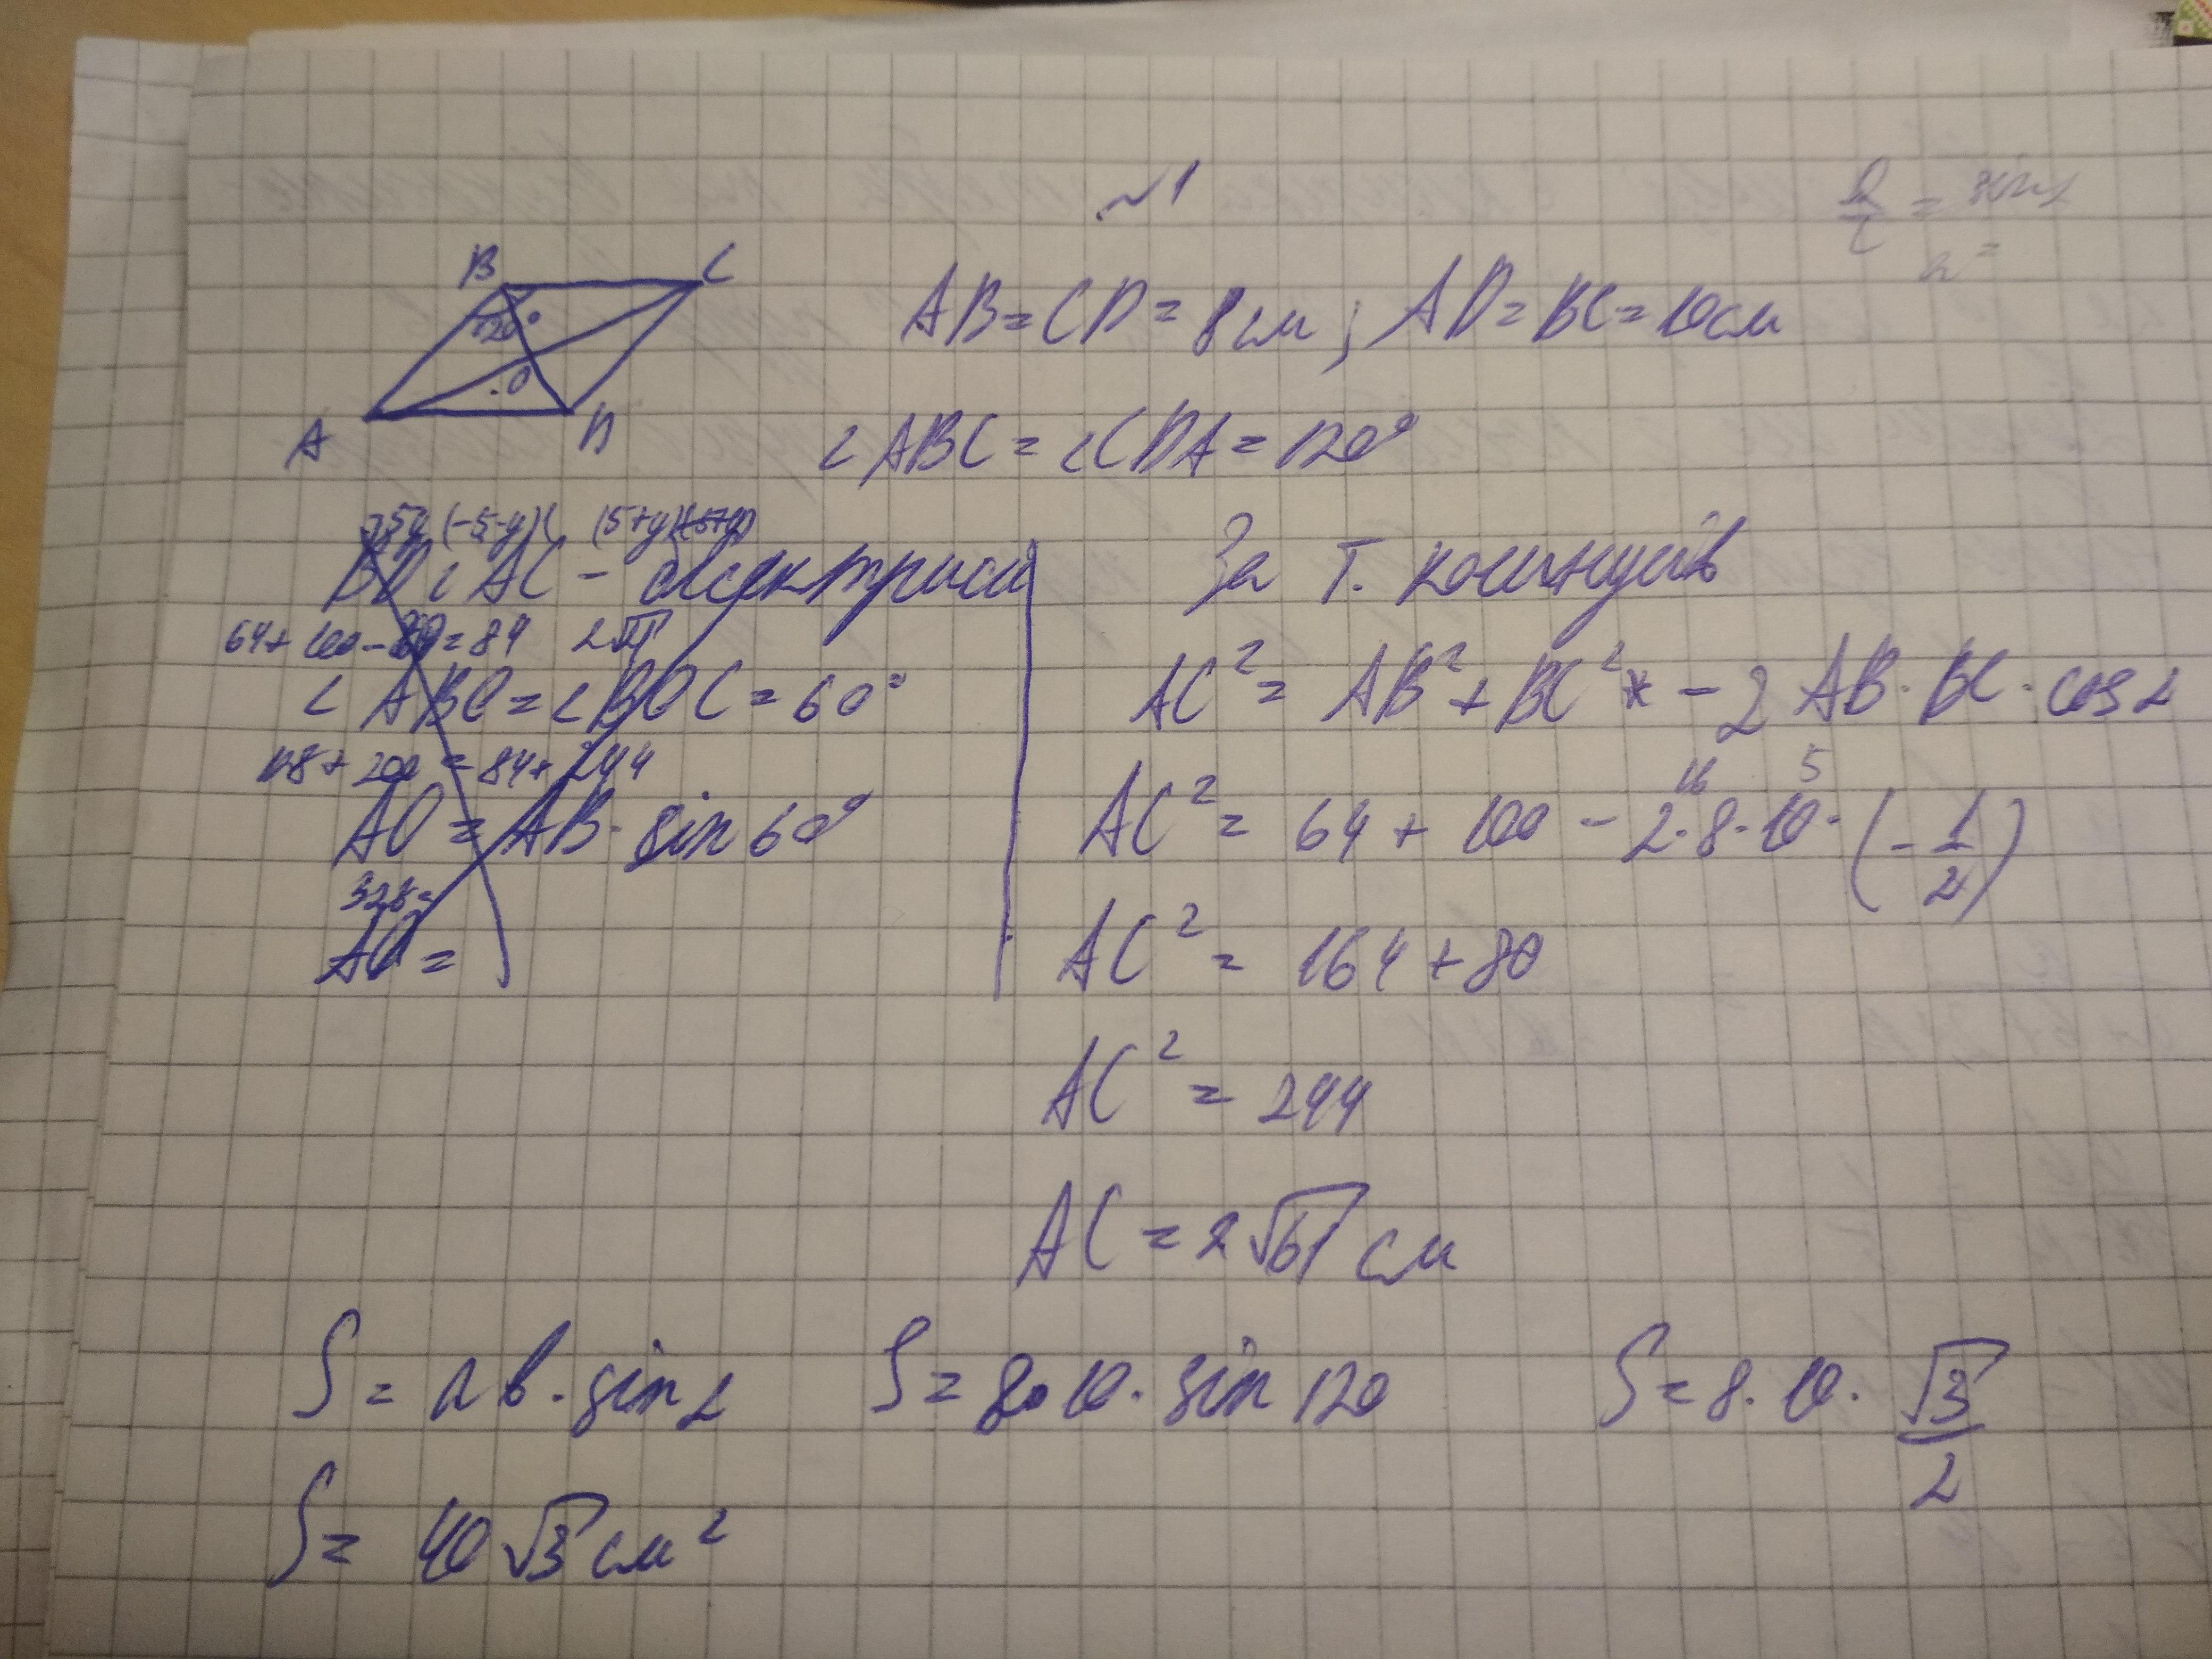 №1
B C
120°
O
A D
AB = CD = 8 см ; AD = BC = 10 см
∠ABC = ∠CDA = 120°
(-5-y)( (5+y)(-5+y)
BD i AC - бісектриси
64 + 100 - 80 = 84 2√21
∠ABO = ∠BOC = 60°
128 + 200 = 84 + 244
AO = AB · sin 60°
328 =
AO =
За т. косинусів
AC² = AB² + BC² - 2 AB · BC · cos α
16 5
AC² = 64 + 100 - 2·8·10·(-1/2)
AC² = 164 + 80
AC² = 244
AC = 2√61 см
S = ab · sin α S = 8·10 · sin 120 S = 8 · 10 · √3/2
S = 40√3 см²